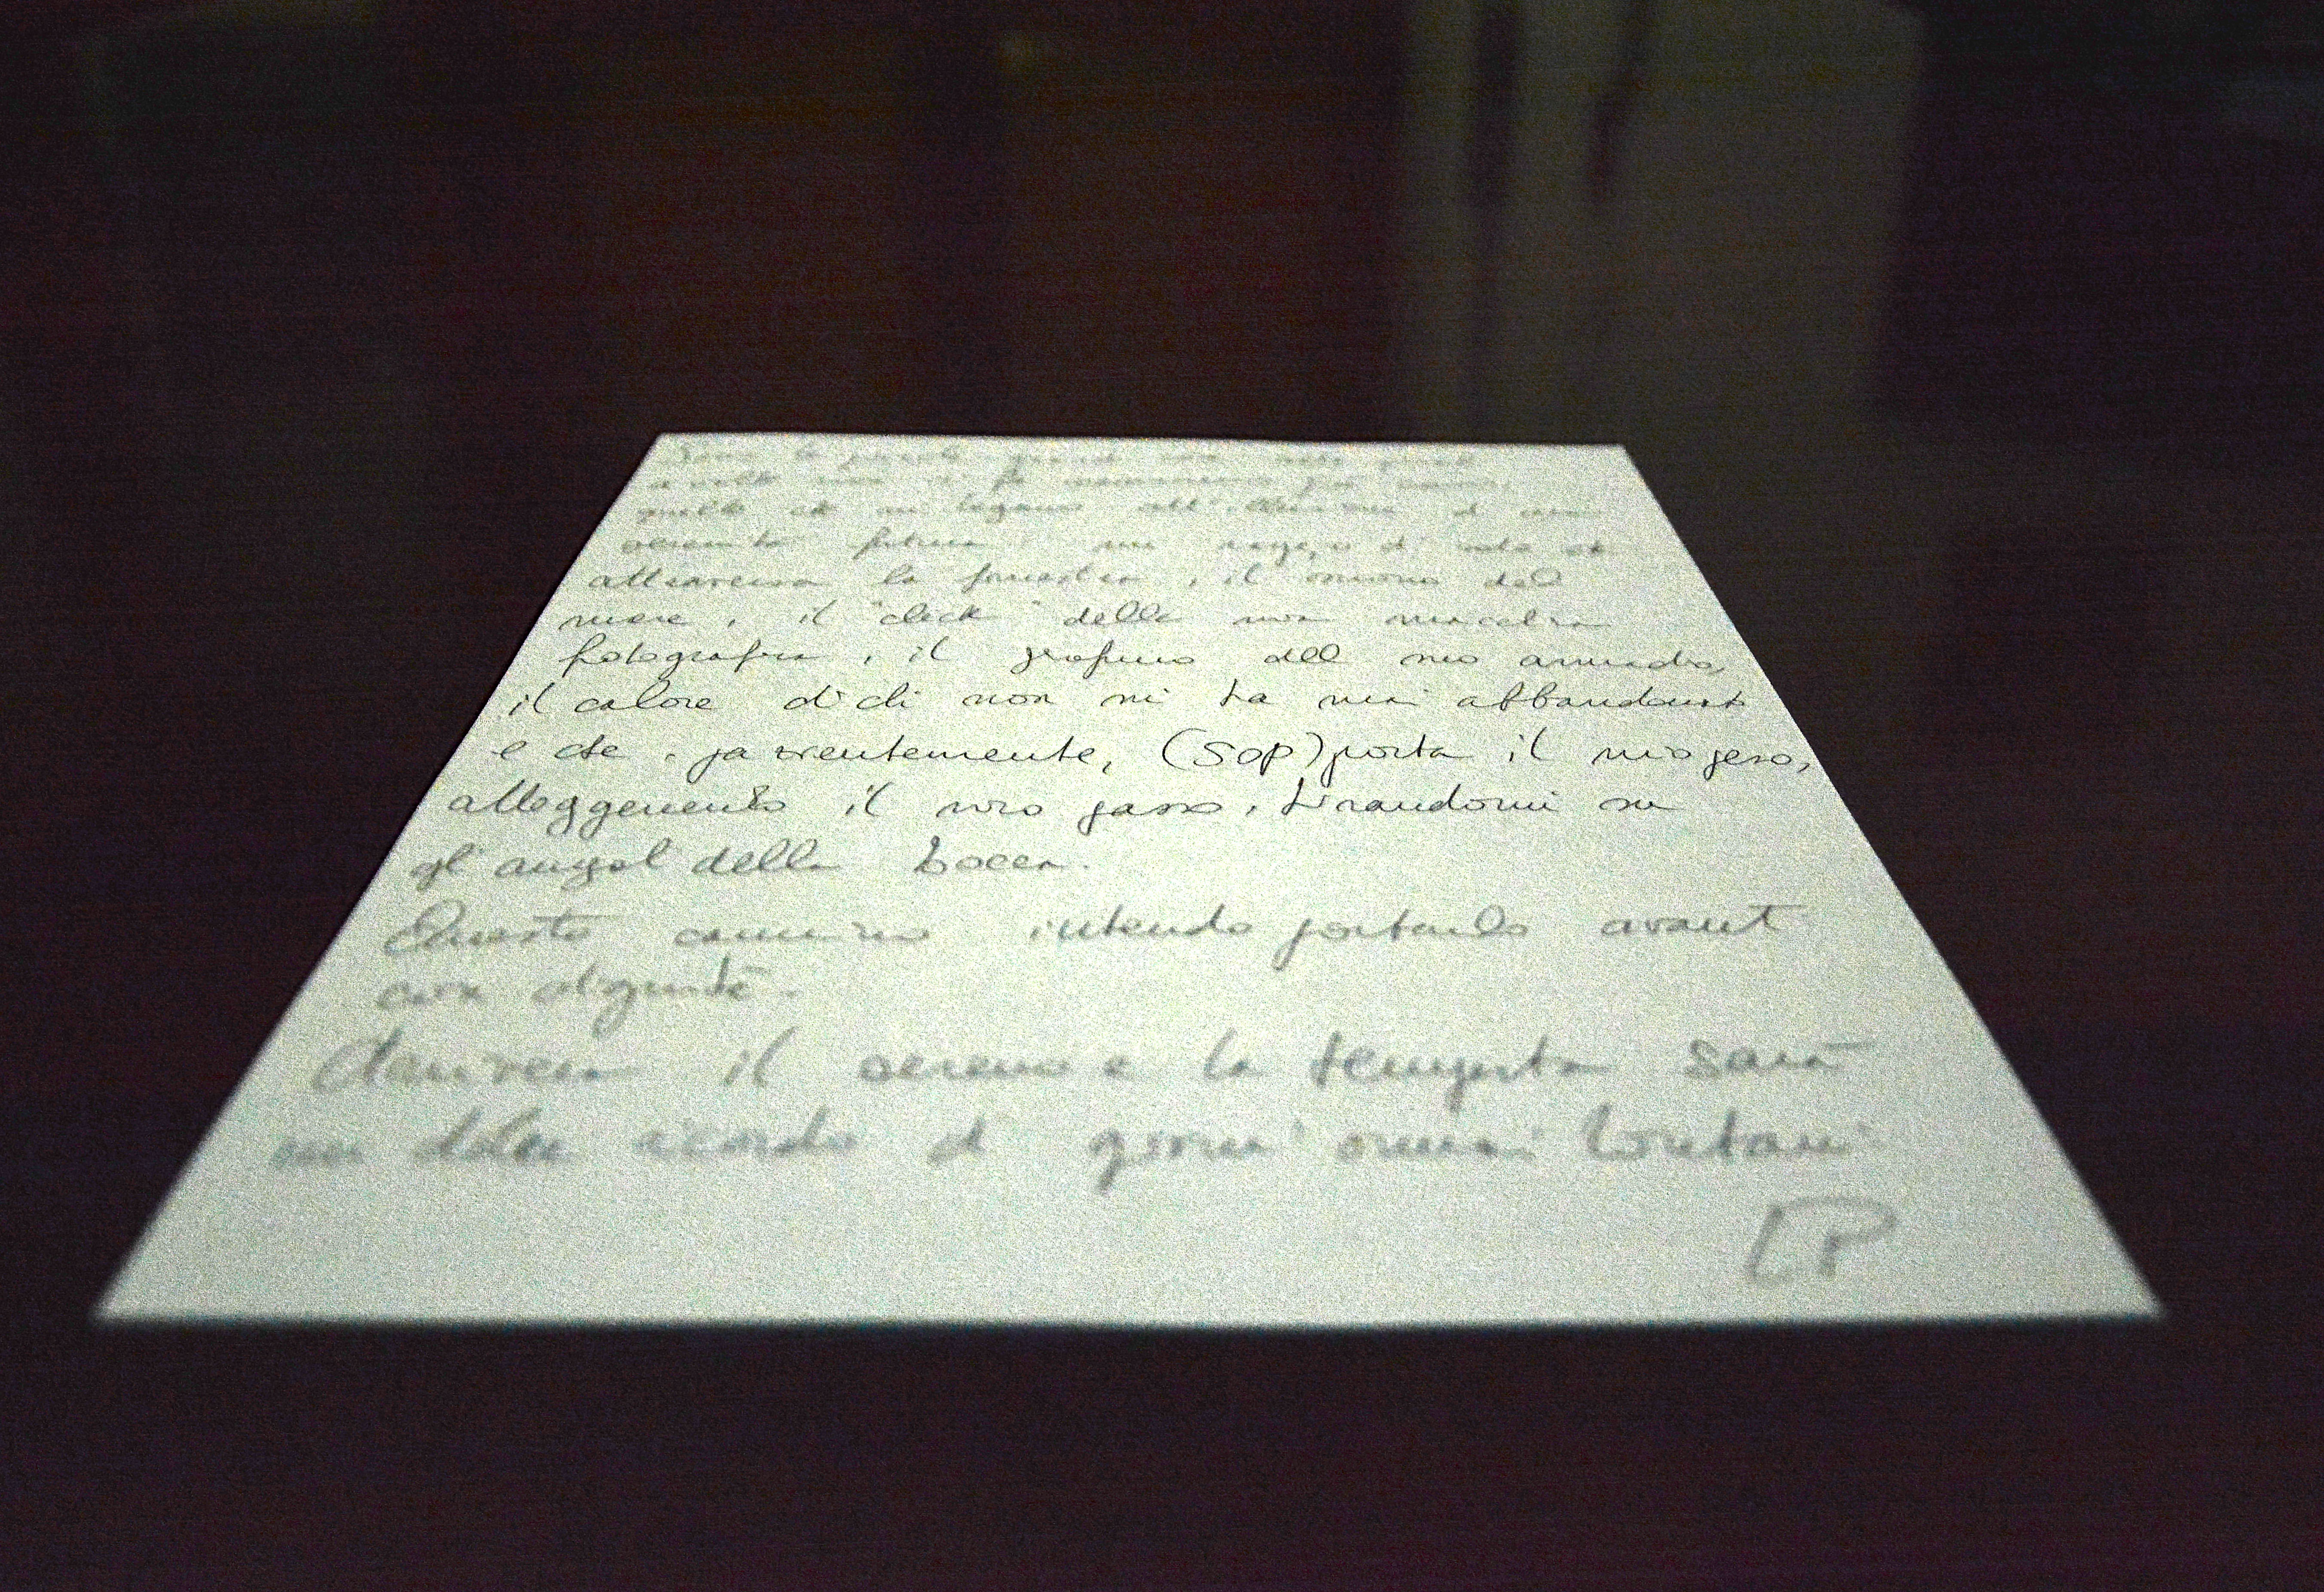 Sono le piccole grandi cose
a volte non ci fa
quelle che mi legano all' d una
serenità futura un raggio di sole che
attraversa la finestra, il suono del
mare, il "click" della mia macchina
fotografica, il profumo dell mio armadio,
il calore di chi non mi ha mai abbandonato
e che, pazientemente, (sop)porta il mio peso,
alleggerendo il mio passo, tirandomi su
gli angoli della bocca.
Questo cammino intendo portarlo avanti
con dignità.
il sereno e la tempesta sarà
un dolce ricordo di giorni ormai lontani
LP